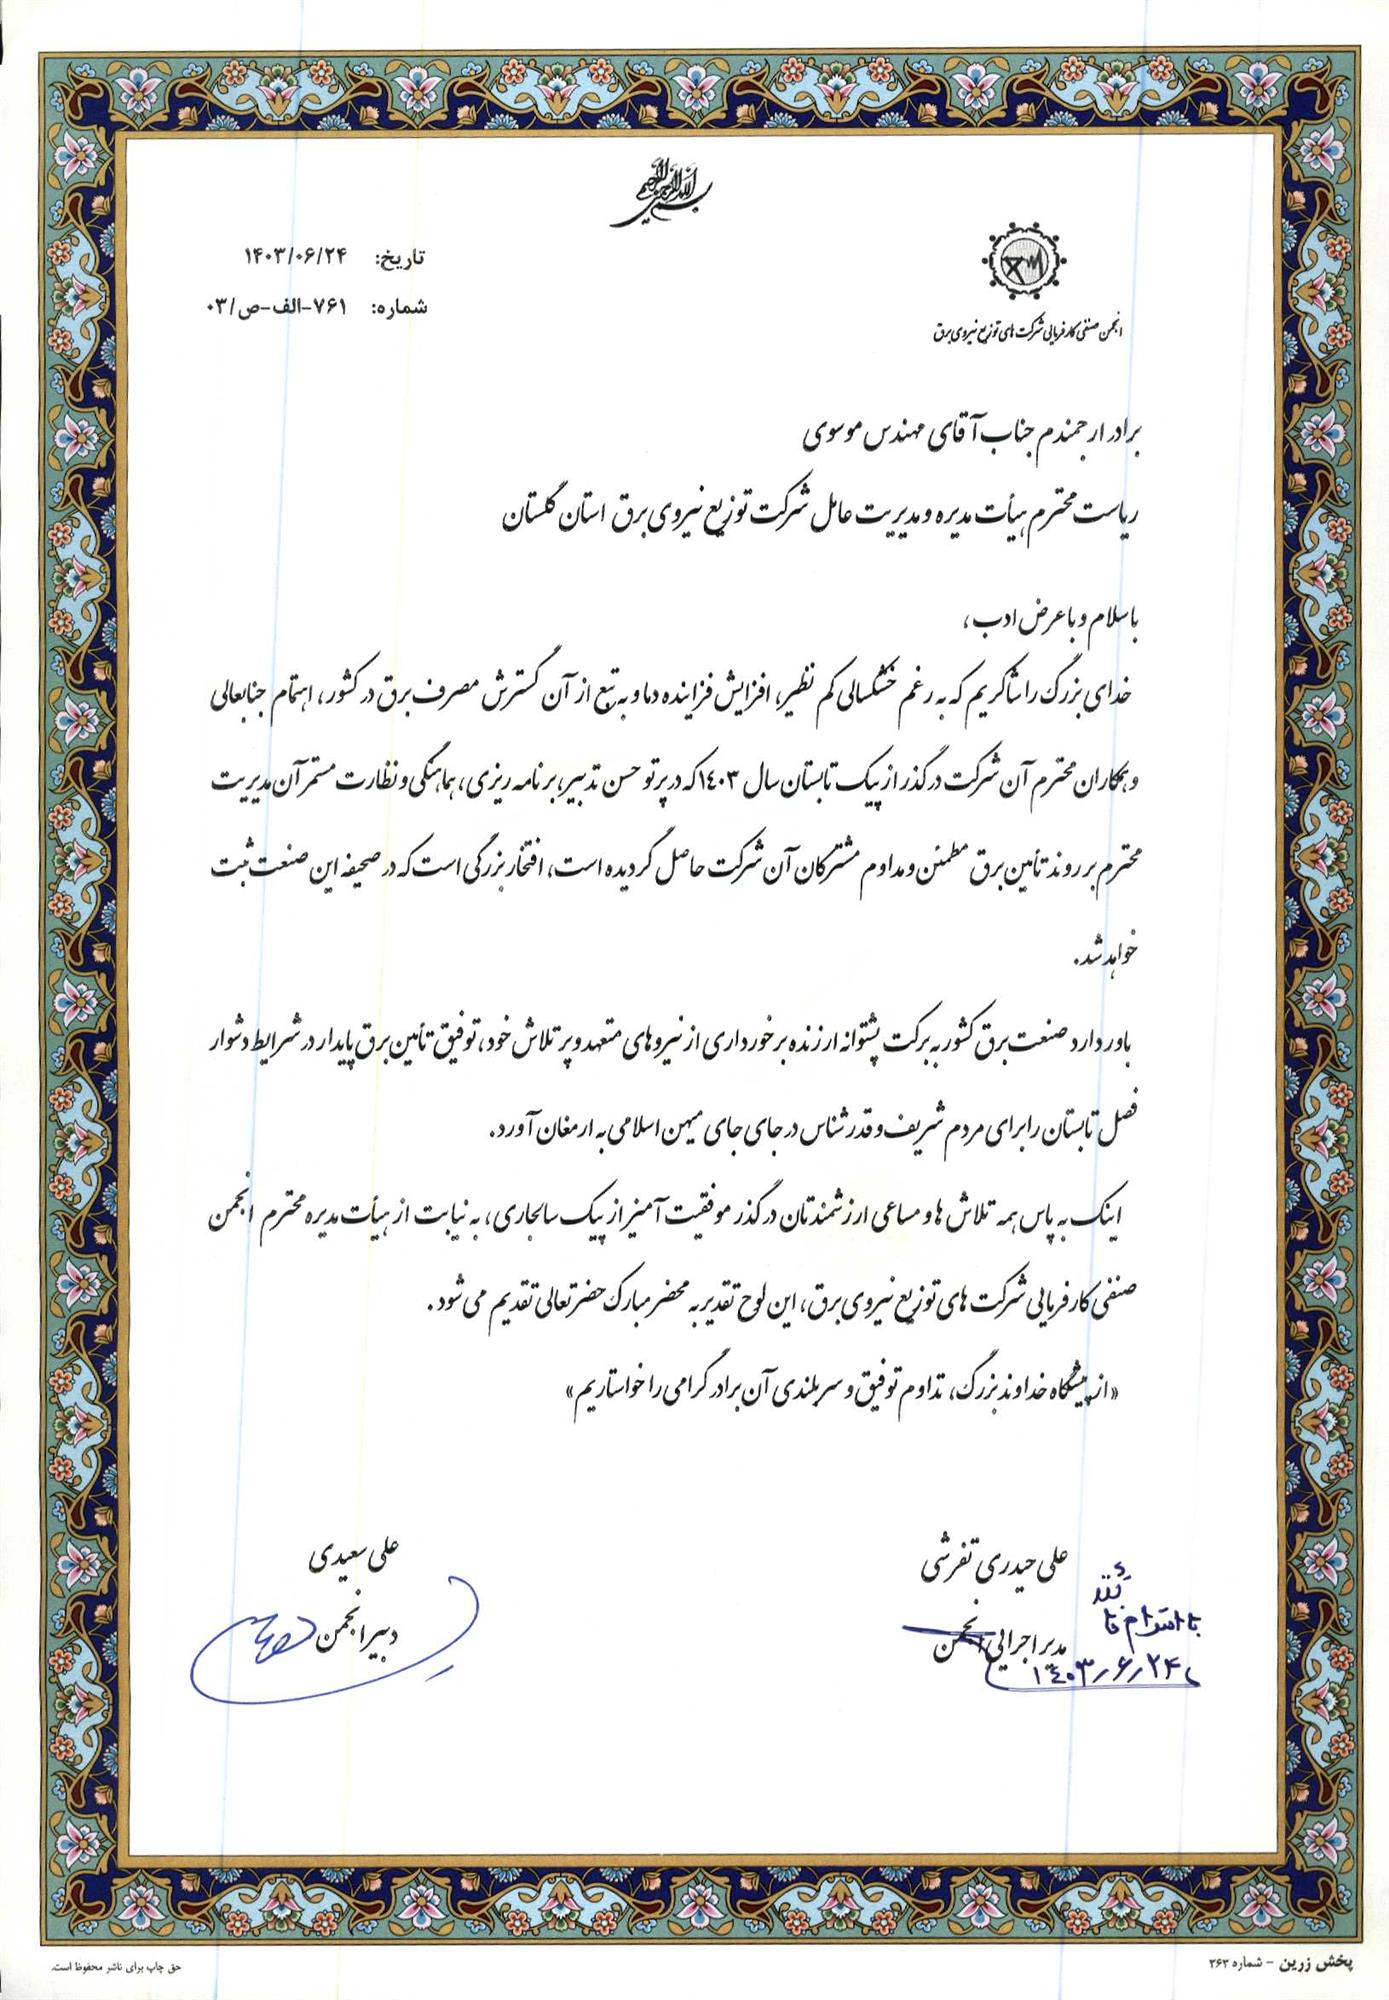 بسم الله الرحمن الرحیم
تاریخ: ۱۴۰۳/۰۶/۲۴
شماره: ۷۶۱-الف-ص/۰۳
انجمن صنفی کارفرمایی شرکت های توزیع نیروی برق
برادر ارجمندم جناب آقای مهندس موسوی
ریاست محترم هیأت مدیره و مدیریت عامل شرکت توزیع نیروی برق استان گلستان
با سلام و با عرض ادب،
خدای بزرگ را شاکریم که به رغم خشکسالی کم نظیر، افزایش فزاینده دما و به تبع از آن گسترش مصرف برق در کشور، اهتمام جنابعالی
و همکاران محترم آن شرکت در گذر از پیک تابستان سال ۱۴۰۳ که در پرتو حسن تدبیر، برنامه ریزی، هماهنگی و نظارت مستمر آن مدیریت
محترم بر روند تأمین برق مطمئن و مداوم مشترکان آن شرکت حاصل گردیده است، افتخار بزرگی است که در صحیفه این صنعت ثبت
خواهد شد.
باور دارد صنعت برق کشور به برکت پشتوانه ارزنده برخورداری از نیروهای متعهد و پر تلاش خود، توفیق تأمین برق پایدار در شرایط دشوار
فصل تابستان را برای مردم شریف و قدرشناس در جای جای میهن اسلامی به ارمغان آورد.
اینک به پاس همه تلاش ها و مساعی ارزشمندتان در گذر موفقیت آمیز از پیک سالجاری، به نیابت از هیأت مدیره محترم انجمن
صنفی کارفرمایی شرکت های توزیع نیروی برق، این لوح تقدیر به محضر مبارک حضرتعالی تقدیم می شود.
«از پیشگاه خداوند بزرگ، تداوم توفیق و سربلندی آن برادر گرامی را خواستاریم»
علی حیدری تفرشی
مدیر اجرایی انجمن
با احترام
۱۴۰۳/۶/۲۴
علی سعیدی
دبیر انجمن
پخش زرین - شماره ۲۶۳
حق چاپ برای ناشر محفوظ است.